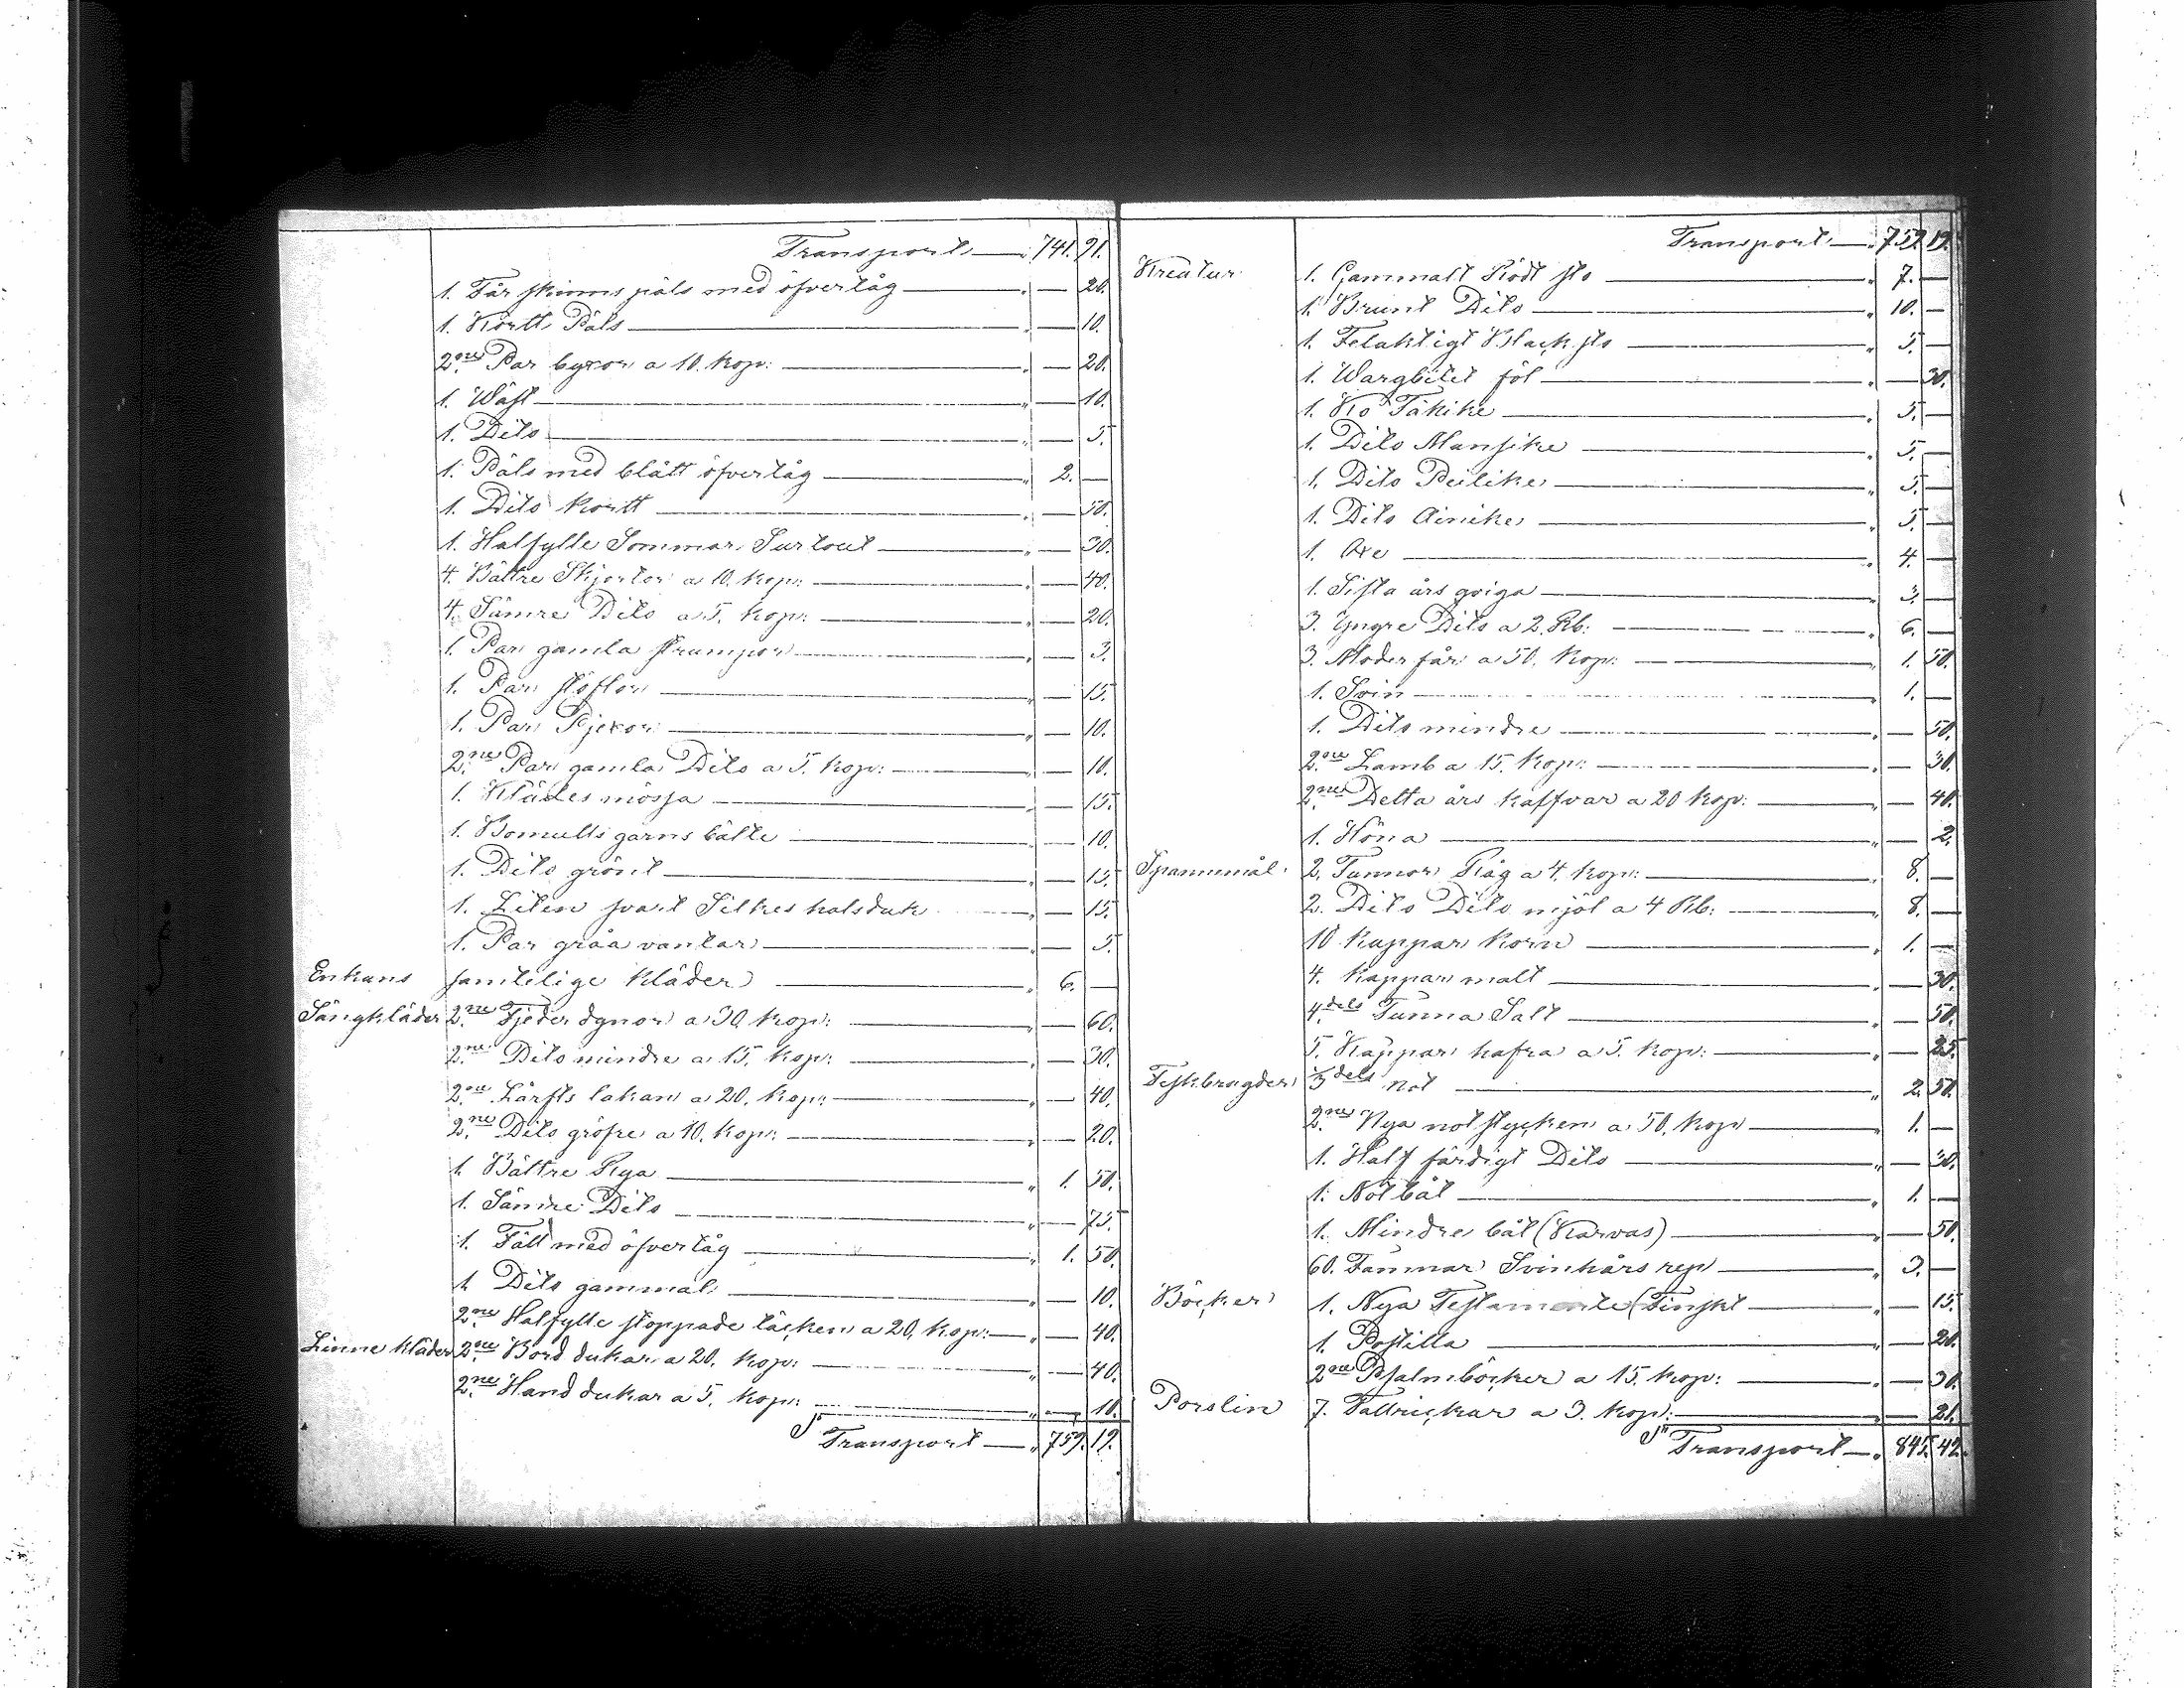 Transport — „ 741. 91.
1. Får skinns päls med öfvertåg — „ — 20.
1. Kortt Päls — „ — 10.
2.ne Par byxor a 10. Kop: — „ — 20.
1. Wäst — „ — 10.
1. Dito — „ — 5.
1. Päls med blått öfvertåg — „ 2. —
1. Dito kortt — „ — 50.
1. Halfylle Sommar Surtout — „ — 30.
4. Bättre Skjortor a 10. Kop: — „ — 40.
4. Sämre Dito a 5. Kop: — „ — 20.
1. Par gamla strumpor — „ — 3.
1. Par stöflor — „ — 15.
1. Par Pjexor — „ — 10.
2.ne Par gamla Dito a 5. Kop: — „ — 10.
1. Klädes mössa — „ — 15.
1. Bomulls garns bälte — „ — 10.
1. Dito grönt — „ — 15.
1. Liten svart Silkes halsduk — „ — 15.
1. Par gråa vantar — „ — 5.
Enkans samtelige kläder — „ 6. —
Sängkläder 2.ne Fjeder dynor a 30. Kop: — „ — 60.
2.ne Dito mindre a 15. Kop: — „ — 30.
2.ne Lärfts lakan a 20. Kop: — „ — 40.
2.ne Dito gröfre a 10. Kop: — „ — 20.
1. Bättre Rya — „ 1. 50.
1. Sämre Dito — „ — 75.
1. Fäll med öfvertåg — „ 1. 50.
1. Dito gammal — „ — 10.
2.ne Halfylle stoppade täcken a 20. Kop: — „ — 40.
Linne kläder 2.ne Bord dukar a 20. Kop: — „ — 40.
2.ne Hand dukar a 5. Kop: — „ — 10.
Transport — „ 759. 19.
Transport — „ 759. 19.
Kreatur 1. Gammalt Rödt sto — „ 7. —
1. Brunt Dito — „ 10. —
1. Felaktigt Black sto — „ 5. —
1. Wargbitet föl — „ — 30.
1. Ko Täkike — „ 5. —
1. Dito Mansike — „ 5. —
1. Dito Peilike — „ 5. —
1. Dito Ainike — „ 5. —
1. Oxe — „ 4. —
1. Sista års qviga — „ 3. —
3. Yngre Dito a 2. Rb: — „ 6. —
3. Moder får a 50. Kop: — „ 1. 50.
1. Svin — „ 1. —
1. Dito mindre — „ — 50.
2.ne Lamb a 15. Kop: — „ — 30.
2.ne Detta års kalfvar a 20 Kop: — „ — 40.
1. Höna — „ — 2.
Spannemål 2. Tunnor Råg a 4. Kop: — „ 8. —
2. Dito Dito mjöl a 4 Rb: — „ 8. —
10 Kappar Korn — „ 1. —
4. Kappar malt — „ — 30.
4.dels Tunna Salt — „ — 50.
5. Kappar hafra a 5. Kop: — „ — 25.
Fiskbragder 1/3 dels Not — „ 2. 50.
2.ne Nya not stycken a 50. Kop — „ 1. —
1. Half färdigt Dito — „ — 30.
1. Notbåt — „ 1. —
1. Mindre båt (Karvas) — „ — 50.
60. Famnar Svinhårs rep — „ 3. —
Böcker 1. Nya Testamente (Finskt — „ — 15.
1. Postilla — „ — 20.
2.ne Psalmböcker a 15. Kop: — „ — 30.
Porslin 7. Tallrickar a 3. Kop: — „ — 21.
Transport — „ 845. 42.